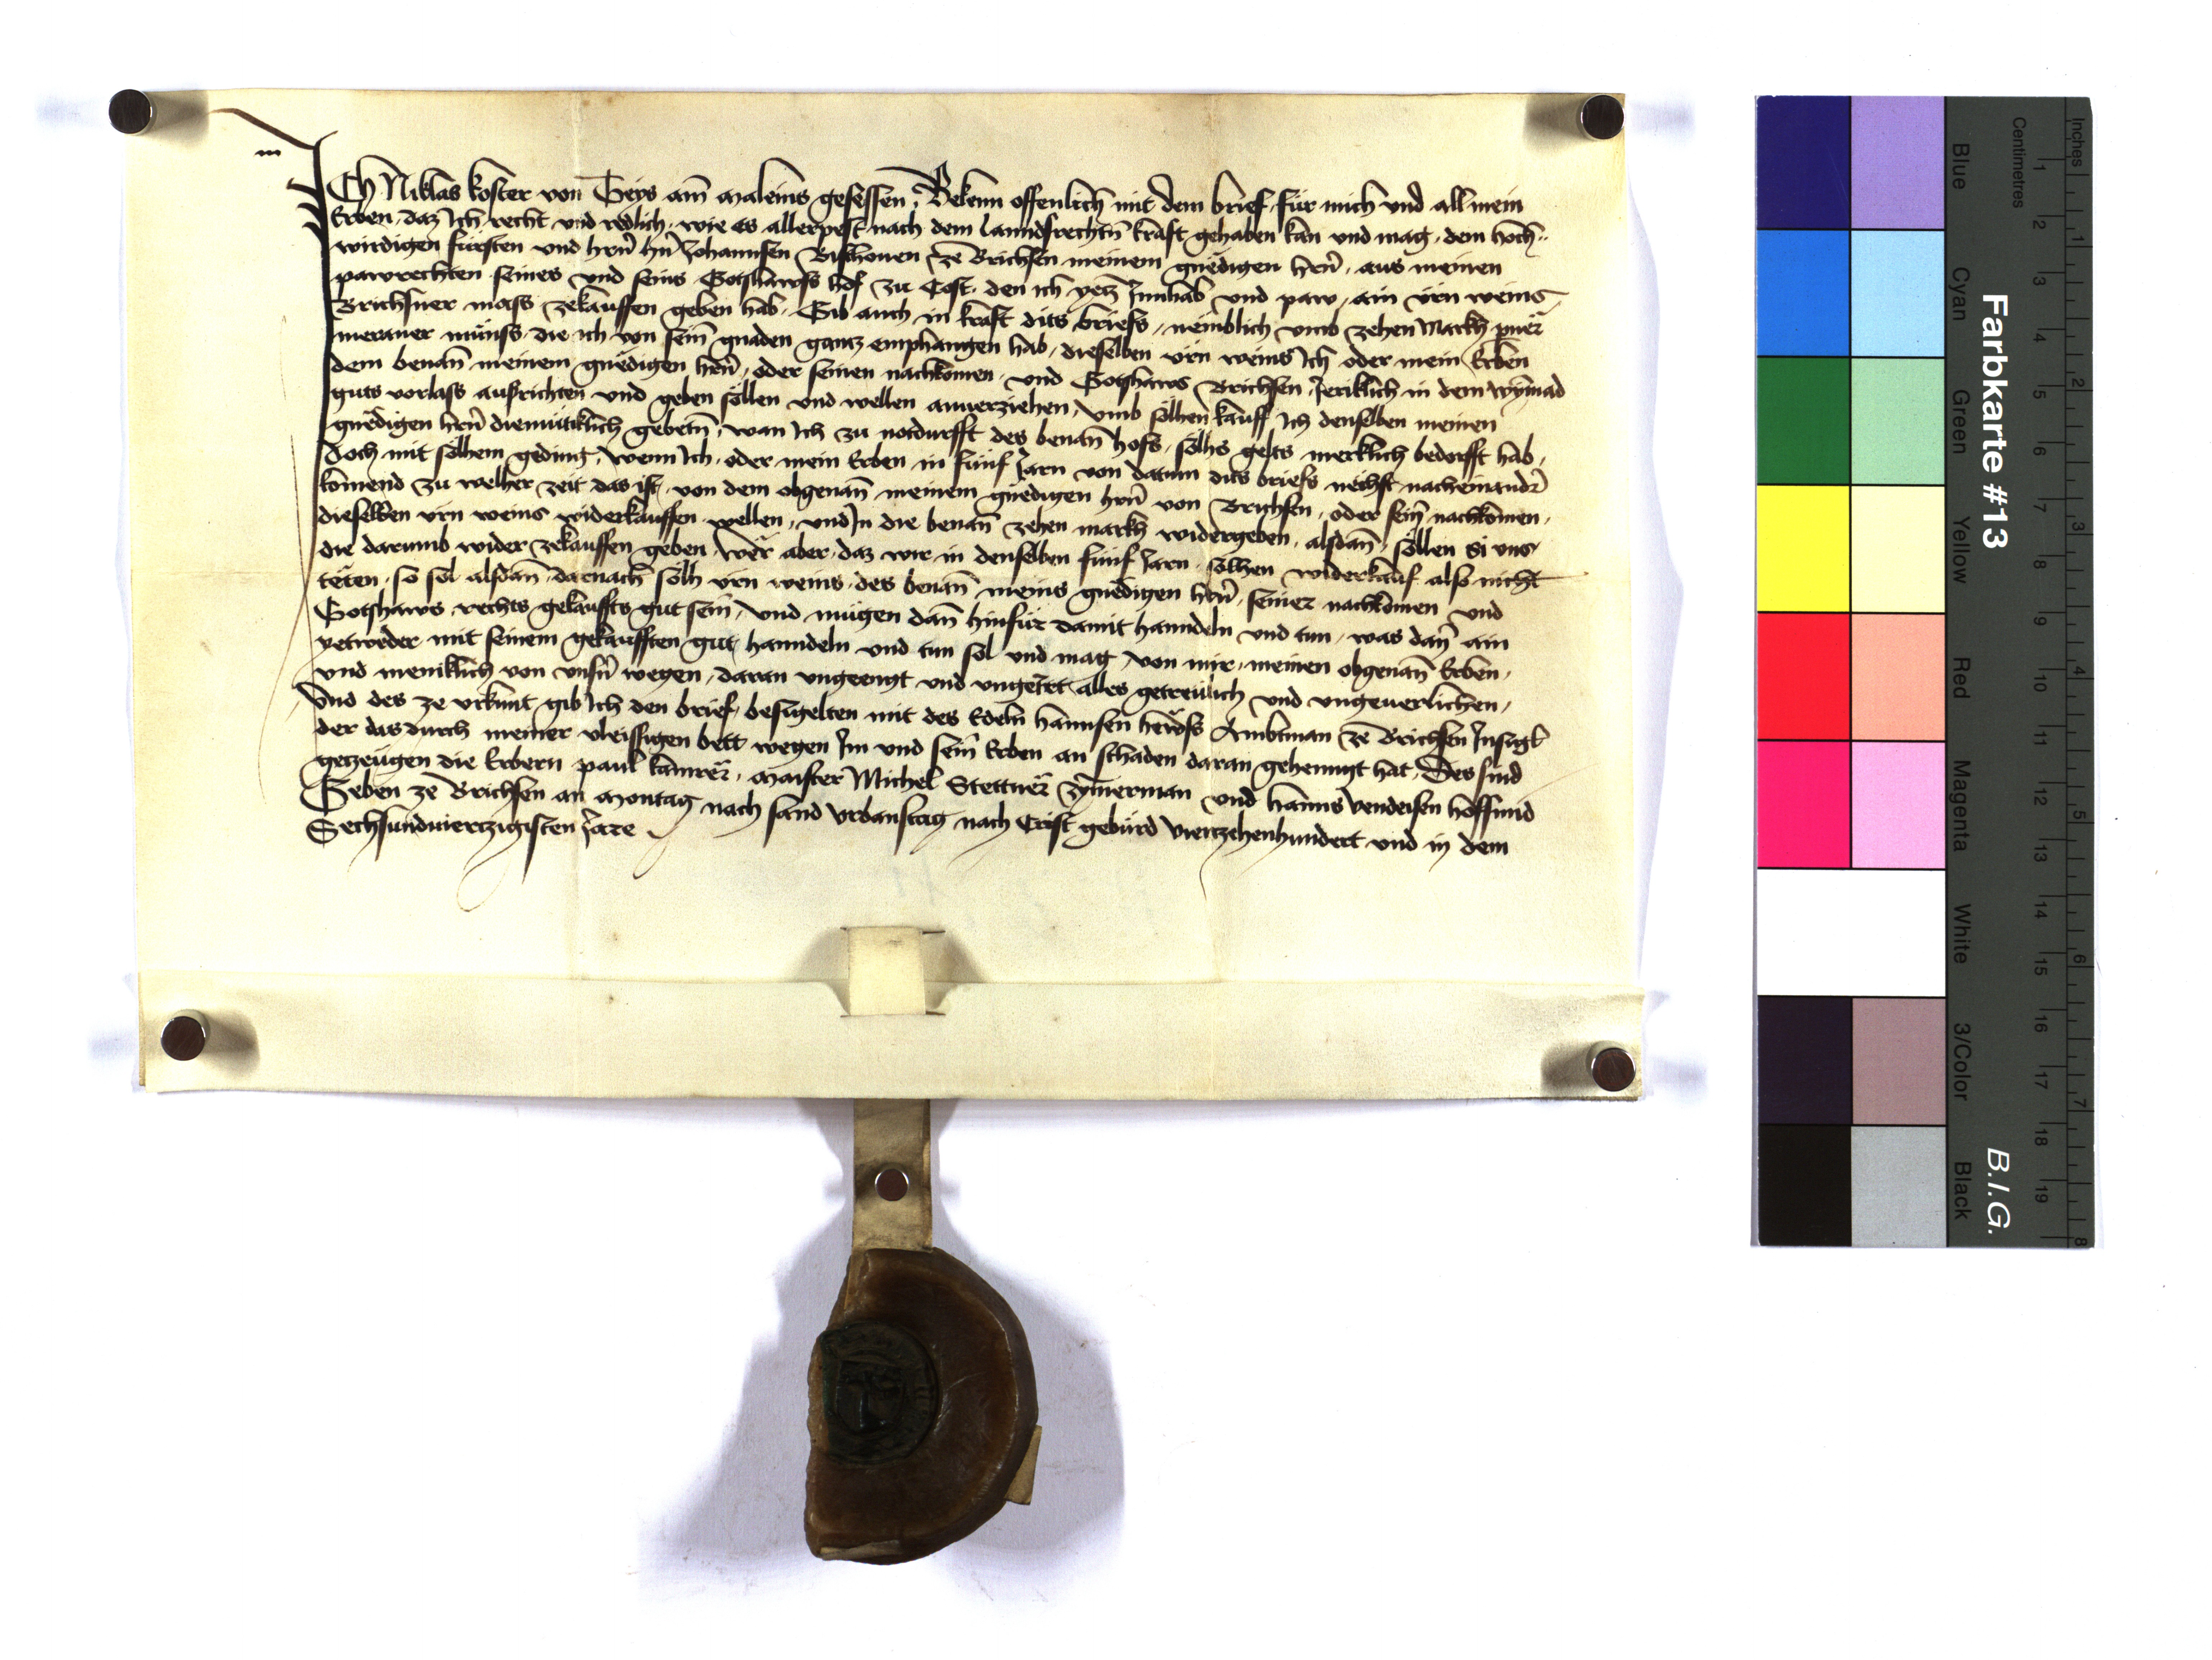 m
ICh Niklas koster von Teys am maleins gesessen, Bekenn offenlich mit dem brief, für mich und all mein
Erben, daz Ich recht und redlich, wie es allerpest nach dem lanndsrechtn̄ kraft gehaben kan und mag, dem hoch-
wirdigen fürsten und hrn̄ hn̄ Johannsen Bischouen ze Brichsen meinem gnedigen hrn̄, aus meinen
pawrechten seines und seins Gotshawss hof zu Cost, den ich yetz Innhab und paw, ain ürn weins
Brichsner mass zekauffen geben hab, Gib auch in kraft dits briefs, nemblich umb zehen Markh pner̄
meraner münss, die ich von sein̄ gnaden gantz emphangen hab, dieselben ürn weins Ich oder mein Erben
dem benan̄ meinem gnedigen hrn̄, oder seinen nachkomen, und Gotshaws Brichsen, Jerlich in dem wȳmad
guts vorlass ausrichten und geben söllen und wellen anuerziehen, umb sölhen kauff Ich denselben meinen
gnedigen hrn̄ diemütiklich gebetn̄, wan Ich zu notdurfft des benan̄ hofs, sölhs gelts merklich bedorfft hab,
doch mit sölhem geding, wenn Ich, oder mein Erben in fünf Jarn von datum dits briefs nechst nacheinandr̄
komend zu welher zeit das ist, von dem obgenan̄ meinem gnedigen hrn̄ von Brichsen, oder sein̄ nachkomen,
dieselben ürn weins widerkauffen wellen, und In die benan̄ zehen markh widergeben, alsdan̄, söllen si uns
die darumb wider zekauffen geben, wer aber, daz wir in denselben fünf Jarn, sölhen widerkauf also nicht
teten, so sol alsdan̄, darnach sölh ürn weins, des benan̄ meins gnedigen hrn̄, seiner nachkomen und
Gotshaws rechts gekauffts gut sein, und mügen dan̄ hinfür damit hanndeln und tun, was dan̄ ain
yetweder mit seinem gekaufften gut, hanndeln und tun sol und mag, von mir, meinen obgenan̄ Erben,
und meniklich von unsn̄ wegen, daran ungeengt und ungeirret, alles getreülich und ungeuerlichen,
Und des ze urkunt gib Ich den brief, besigelten mit des Edeln hannsen Ambtman ze Brichsen Insigl
der das durch meiner vleissigen bett wegen Im und sein̄ Erben an schaden daran gehenngt hat, Des sind
getzeugen die Erbern paul kamrer̄, maister Michel Stettner̄ zȳmerman und hanns vendeisen hoffsmid
Geben ze Brichsen an Montag nach sand Urbanstag nach Crist gebürd viertzehenhundert und in dem
Sechsundviertzigisten Jare
Farbkarte #13
B.I.G.
Centimetres
Inches
Blue
Cyan
Green
Yellow
Red
Magenta
White
3/Color
Black
1 2 3 4 5 6 7 8 9 10 11 12 13 14 15 16 17 18 19
1 2 3 4 5 6 7 8